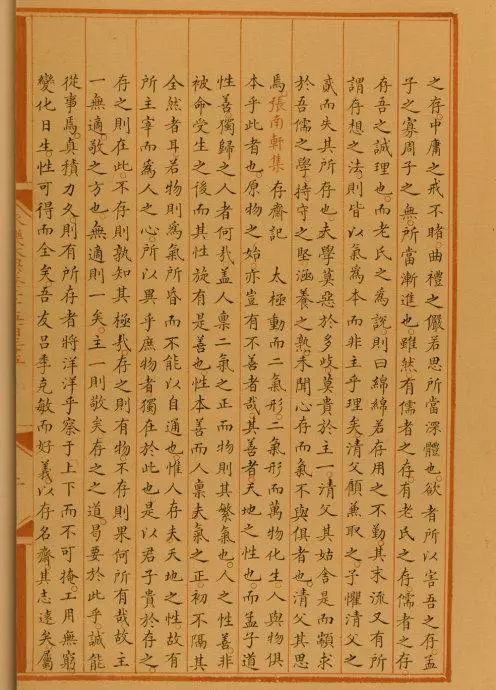 之存。中庸之戒不睹。曲禮之儼若思所當深體也。欲者所以害吾之存。孟
子之寡周子之無所當漸進也。雖然有儒者之存。有老氏之存儒者之存
存吾之誠理也。而老氏之為說。則曰綿綿若存用之不勤其末流又有所
謂存想之法則皆以氣為本而非主乎理矣清父顧兼取之。予懼清父之
貳而失其所存也夫學莫惡於多歧莫貴於主一。清父其姑舍是而顓求
於吾儒之學持守之堅涵養之熟。未聞心存而氣不與俱者也。清父其思
焉。張南軒集 存齋記 太極動而二氣形。二氣形而萬物化生。人與物俱
本乎此者也。原物之始亦豈有不善者哉其善者天地之性也。而孟子道
性善獨歸之人者何哉蓋人稟二氣之正而物則其繁氣也。人之性善非
被命受生之後而其性旋有是善也性本善而人稟夫氣之正。初不隔其
全然者耳若物則為氣所昏而不能以自通也。惟人存夫天地之性故有
所主宰而為人之心所以異乎庶物者獨在於此也是以君子貴於存之。
存之則在此。不存則孰知其極哉存之則有物不存則果何所有哉故主
一無適敬之方也。無適則一矣。主一則敬矣存之之道。曷要於此乎。誠能
從事焉。真積力久則有所存者將洋洋乎察于上下而不可掩。工用無窮
變化日生。性可得而全矣吾友呂季克敏而好義。以存名齋其志遠矣屬